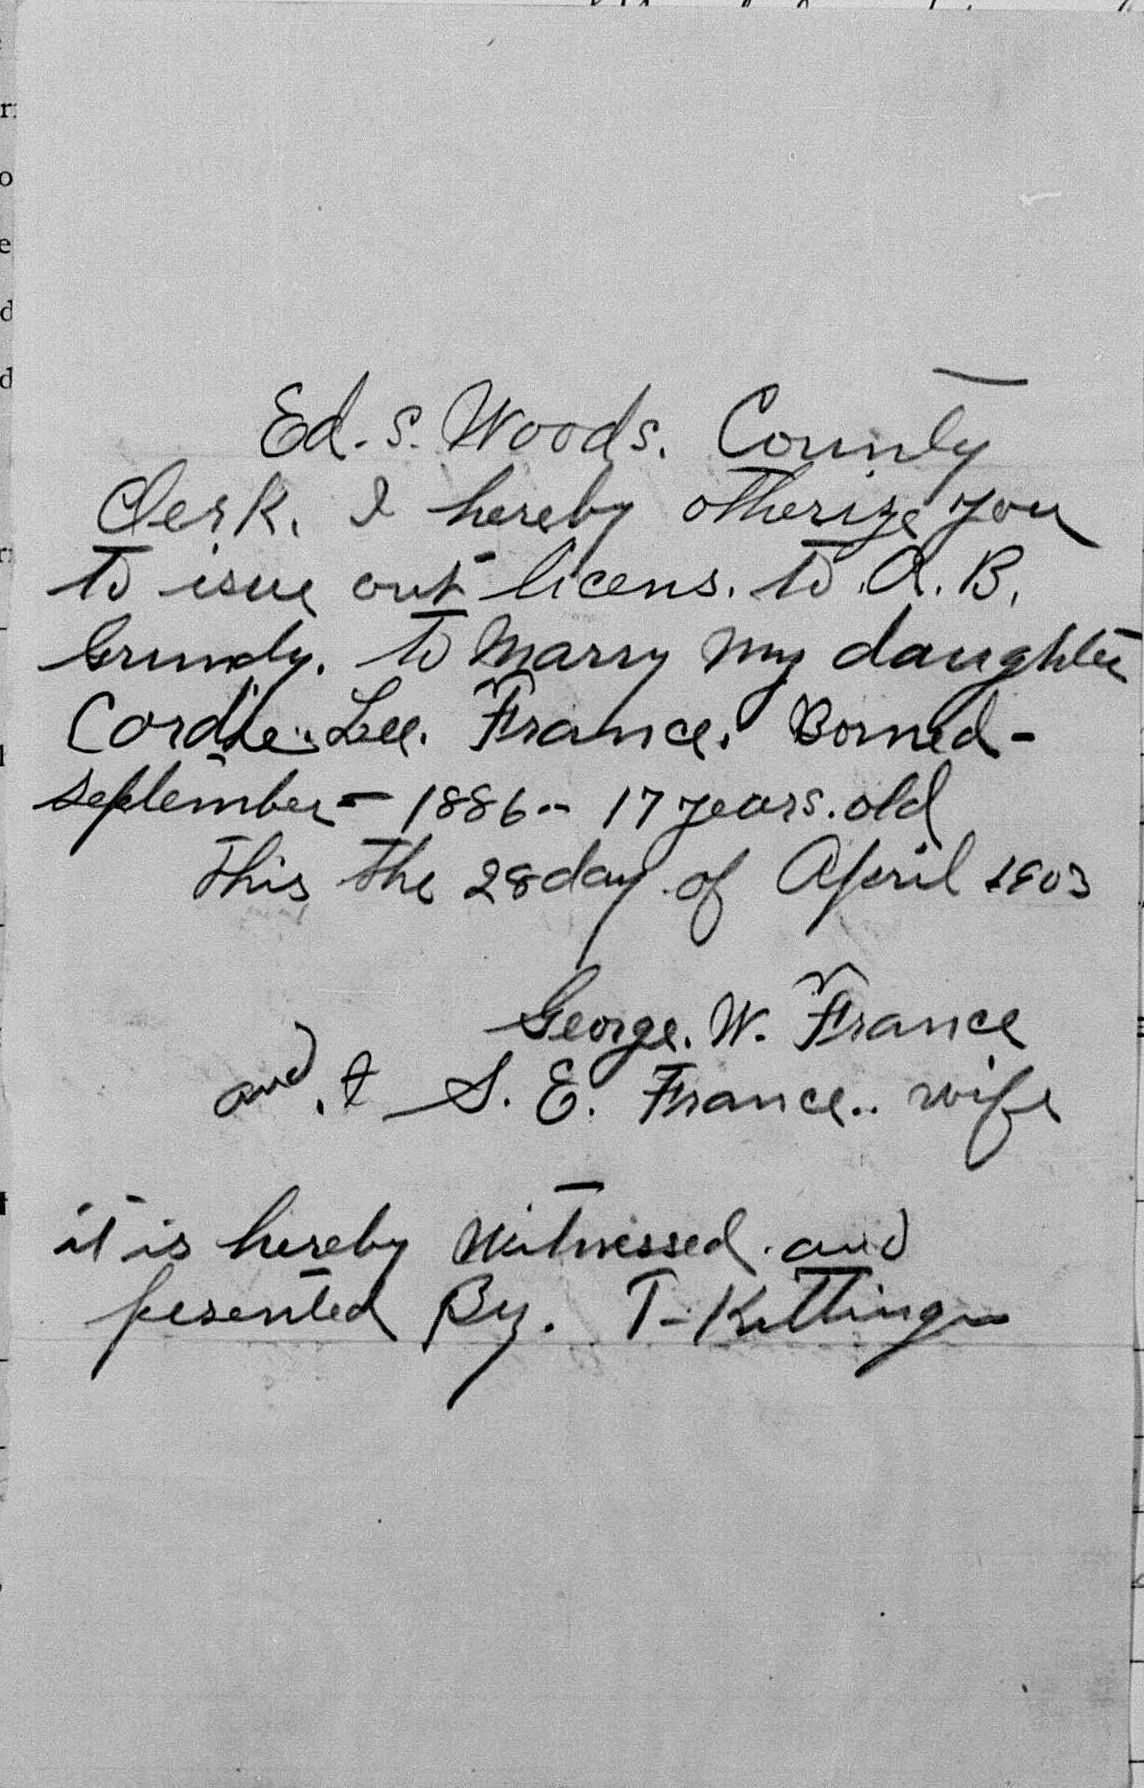 Ed. S. Woods. County
Clerk. I hereby otherize you
to isue out licens. to A. B.
Grundy. to Marry my daughter
Cordie Lee. France. Borned-
september- 1886- 17 years. old
this the 28 day of April 1903
George. W. France
and. & S. E. France.. wife
it is hereby witnessed. and
pesented By. T- Kittinger